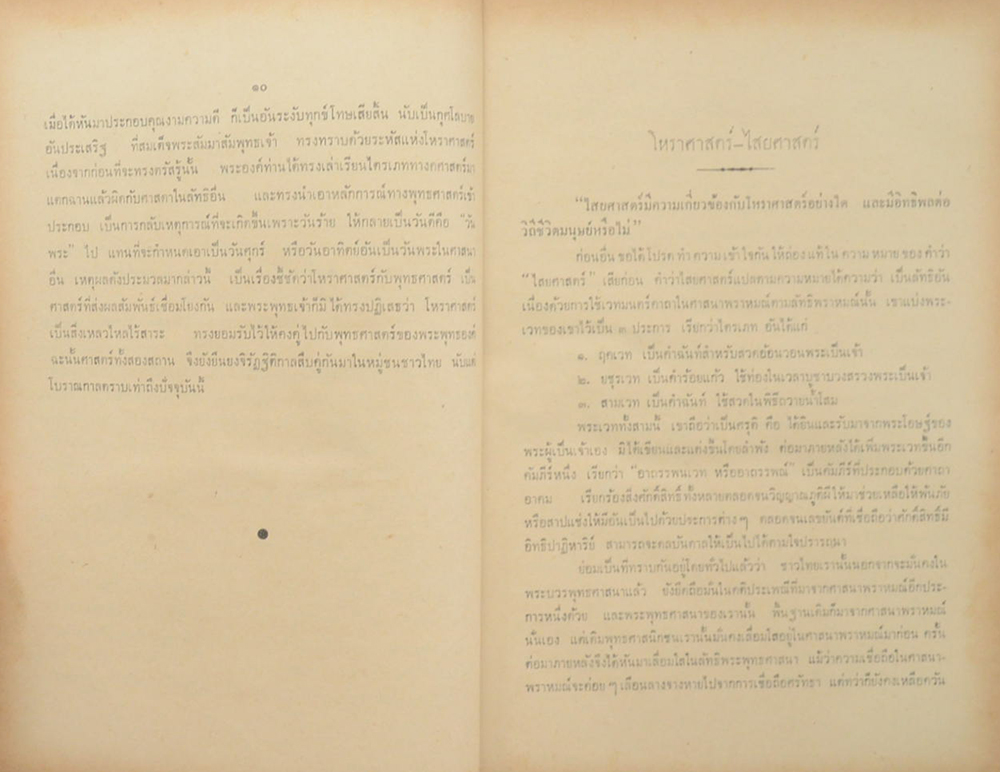 ๑๐
เมื่อได้หันมาประกอบคุณงามความดี ก็เป็นอันระงับทุกข์โทษเสียสิ้น นับเป็นกุศโลบาย
อันประเสริฐ ที่สมเด็จพระสัมมาสัมพุทธเจ้า ทรงทราบด้วยระหัสแห่งโหราศาสตร์
เนื่องจากก่อนที่จะทรงตรัสรู้นั้น พระองค์ท่านได้ทรงเล่าเรียนไตรเภททางคศาสตร์มา
แตกฉานแล้วผิดกับศาสดาในลัทธิอื่น และทรงนำเอาหลักการณ์ทางพุทธศาสตร์เข้า
ประกอบ เป็นการกลับเหตุการณ์ที่จะเกิดขึ้นเพราะวันร้าย ให้กลายเป็นวันดีคือ "วัน
พระ" ไป แทนที่จะกำหนดเอาเป็นวันศุกร์ หรือวันอาทิตย์อันเป็นวันพระในศาสนา
อื่น เหตุผลดังประมวลมากล่าวนี้ เป็นเรื่องชี้ชัดว่าโหราศาสตร์กับพุทธศาสตร์ เป็น
ศาสตร์ที่ส่งผลสัมพันธ์เชื่อมโยงกัน และพระพุทธเจ้าก็มิได้ทรงปฏิเสธว่า โหราศาสตร์
เป็นสิ่งเหลวไหลไร้สาระ ทรงยอมรับไว้ให้คงคู่ไปกับพุทธศาสตร์ของพระพุทธองค์
ฉะนั้นศาสตร์ทั้งสองสถาน จึงยังยืนยงจิรัฏฐิติกาลสืบคู่กันมาในหมู่ชนชาวไทย นับแต่
โบราณกาลตราบเท่าถึงปัจจุบันนี้
โหราศาสตร์-ไสยศาสตร์
"ไสยศาสตร์มีความเกี่ยวข้องกับโหราศาสตร์อย่างใด และมีอิทธิพลต่อ
วิถีชีวิตมนุษย์หรือไม่"
ก่อนอื่น ขอได้โปรด ทำ ความ เข้าใจกัน ให้ถ่องแท้ใน ความ หมาย ของ คำว่า
"ไสยศาสตร์" เสียก่อน คำว่าไสยศาสตร์แปลตามความหมายได้ความว่า เป็นลัทธิอัน
เนื่องด้วยการใช้เวทมนตร์คาถาในศาสนาพราหมณ์ตามลัทธิพราหมณ์นั้น เขาแบ่งพระ-
เวทของเขาไว้เป็น ๓ ประการ เรียกว่าไตรเภท อันได้แก่
๑. ฤคเวท เป็นคำฉันท์สำหรับสวดอ้อนวอนพระเป็นเจ้า
๒. ยชุรเวท เป็นคำร้อยแก้ว ใช้ท่องในเวลาบูชาบวงสรวงพระเป็นเจ้า
๓. สามเวท เป็นคำฉันท์ ใช้สวดในพิธีถวายน้ำโสม
พระเวททั้งสามนี้ เขาถือว่าเป็นศรุติ คือ ได้ยินและรับมาจากพระโอษฐ์ของ
พระผู้เป็นเจ้าเอง มิได้เขียนและแต่งขึ้นโดยลำพัง ต่อมาภายหลังได้เพิ่มพระเวทขึ้นอีก
คัมภีร์หนึ่ง เรียกว่า "อาถรรพนเวท หรืออาถรรพณ์" เป็นคัมภีร์ที่ประกอบด้วยคาถา
อาคม เรียกร้องสิ่งศักดิ์สิทธิ์ทั้งหลายตลอดจนวิญญาณภูติผีให้มาช่วยเหลือให้พ้นภัย
หรือสาปแช่งให้มีอันเป็นไปด้วยประการต่างๆ ตลอดจนเลขยันต์ที่เชื่อถือว่าศักดิ์สิทธิ์มี
อิทธิปาฏิหาริย์ สามารถจะดลบันดาลให้เป็นไปได้ตามใจปรารถนา
ย่อมเป็นที่ทราบกันอยู่โดยทั่วไปแล้วว่า ชาวไทยเรานั้นนอกจากจะมั่นคงใน
พระบวรพุทธศาสนาแล้ว ยังยึดถือมั่นในคติประเพณีที่มาจากศาสนาพราหมณ์อีกประ-
การหนึ่งด้วย และพระพุทธศาสนาของเรานั้น พื้นฐานเดิมก็มาจากศาสนาพราหมณ์
นั่นเอง แต่เดิมพุทธศาสนิกชนเรานั้นมั่นคงเลื่อมใสอยู่ในศาสนาพราหมณ์มาก่อน ครั้น
ต่อมาภายหลังจึงได้หันมาเลื่อมใสในลัทธิพระพุทธศาสนา แม้ว่าความเชื่อถือในศาสนา-
พราหมณ์จะค่อย ๆ เลือนลางจางหายไปจากการเชื่อถือศรัทธา แต่ทว่าก็ยังคงเหลือควัน